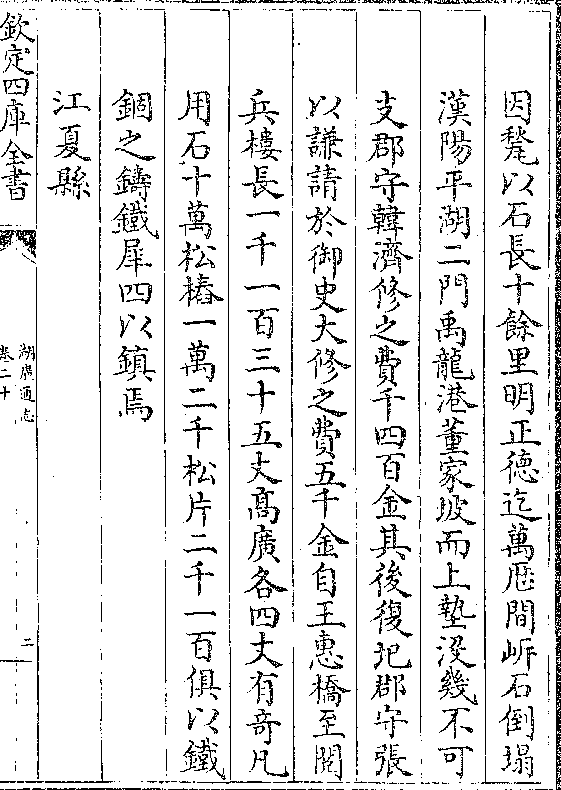 因甃以石長十餘里明正德迄萬厯間岍石倒塌
漢陽平湖二門禹龍港董家坡而上墊沒幾不可
支郡守韓濟修之費千四百金其後復圮郡守張
以謙請於御史大修之費五千金自王惠橋至閱
兵樓長一千一百三十五丈髙廣各四丈有奇凡
用石十萬松樁一萬二千松片二千一百俱以鐵
錮之鑄鐵犀四以鎮焉
江夏縣
欽定四庫全書
湖廣通志
卷二十
二